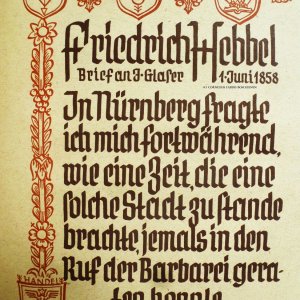 Friedrich Hebbel
Brief an J. Glaser 1. Juni 1858
In Nürnberg fragte
ich mich fortwährend,
wie eine Zeit, die eine
solche Stadt zu stande
brachte, jemals in den
Ruf der Barbarei gera-
ten konnte
HANDEL